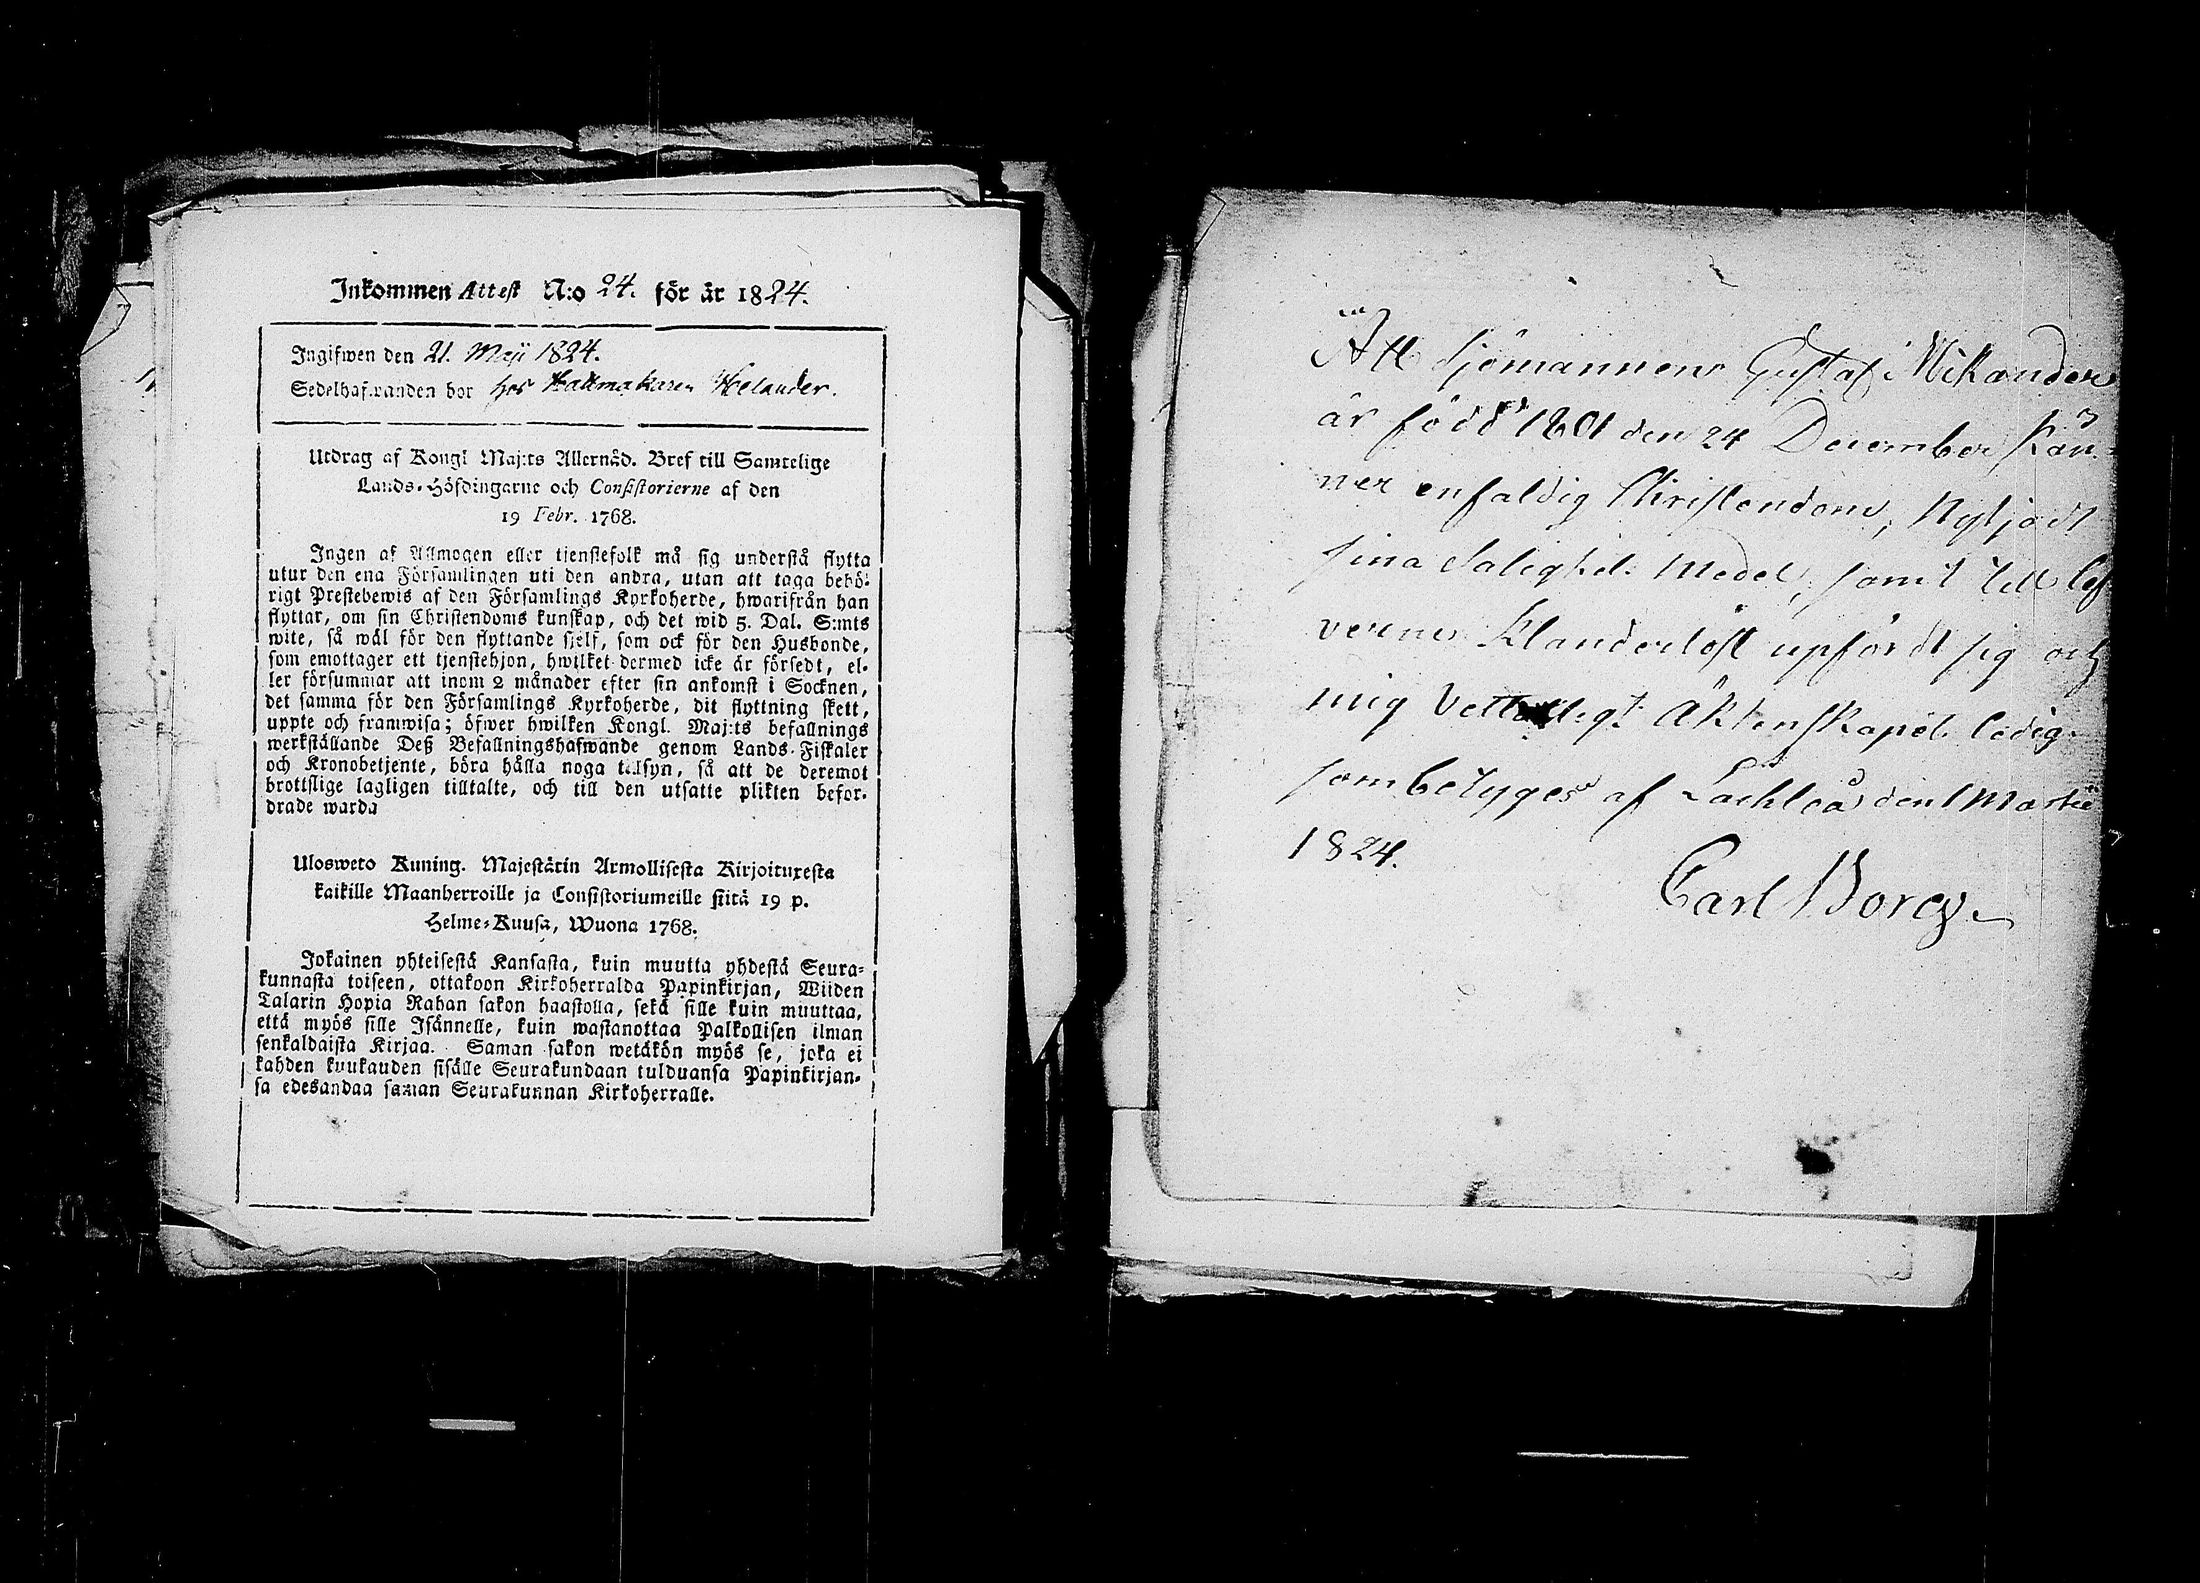 Inkommen Attest N:o 24. för år 1824.
Ingifwen den 21. Maji 1824.
Sedelhafwanden bor hos Hattmakaren Helander.
Utdrag af Kongl Maj:ts Allernåd. Bref till Samtelige
Lands-Höfdingarne och Consistorierne af den
19 Febr. 1768.
Ingen af Allmogen eller tjenstefolk må sig understå flytta
utur den ena Församlingen uti den andra, utan att taga behö-
rigt Prestebewis af den Församlings Kyrkoherde, hwarifrån han
flyttar, om sin Christendoms kunskap, och det wid 5. Dal. S:mts
wite, så wäl för den flyttande sjelf, som ock för den Husbonde,
som emottager ett tjenstehjon, hwilket dermed icke är försedt, el-
ler försummar att inom 2 månader efter sin ankomst i Socknen,
det samma för den Församlings Kyrkoherde, dit flyttning skett,
uppte och framwisa; öfwer hwilken Kongl. Maj:ts befallnings
werkställande Deß Befallningshafwande genom Lands-Fiskaler
och Kronobetjente, böra hålla noga tillsyn, så att de deremot
brottslige lagligen tilltalte, och till den utsatte plikten befor-
drade warda
Ulosweto Kuning. Majestätin Armollisesta Kirjoituxesta
kaikille Maanherroille ja Consistoriumeille siitä 19 p.
Helme-Kuusa, Wuona 1768.
Jokainen yhteisestä Kansasta, kuin muutta yhdestä Seura-
kunnasta toiseen, ottakoon Kirkoherralda Papinkirjan, Wiiden
Talarin Hopia Rahan sakon haastolla, sekä sille kuin muuttaa,
että myös sille Isännelle, kuin wastanottaa Palkollisen ilman
senkaldaista Kirjaa. Saman sakon wetäkön myös se, joka ei
kahden kuukauden sisälle Seurakundaan tulduansa Papinkirjan-
sa edesandaa saman Seurakunnan Kirkoherralle.
Att Sjömannen Gustaf Mikander
är född 1801 den 24 December Kän-
ner enfaldig Christendom, Nytjadt
sina Salighets Medel, samt till lef-
verne Klanderlöst upfördt sig och
mig Vetterligt Äktenskapet ledig
som betyges af den 1 Martii
1824.
Carl Borg